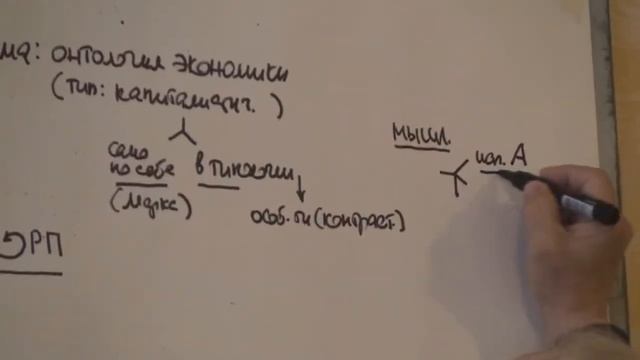 ма: онтология экономики
(тип: капиталистич.)
само
по себе
в типологии
(Маркс)
особ-ти (контраст)
мышл.
исп. А
ЭРП